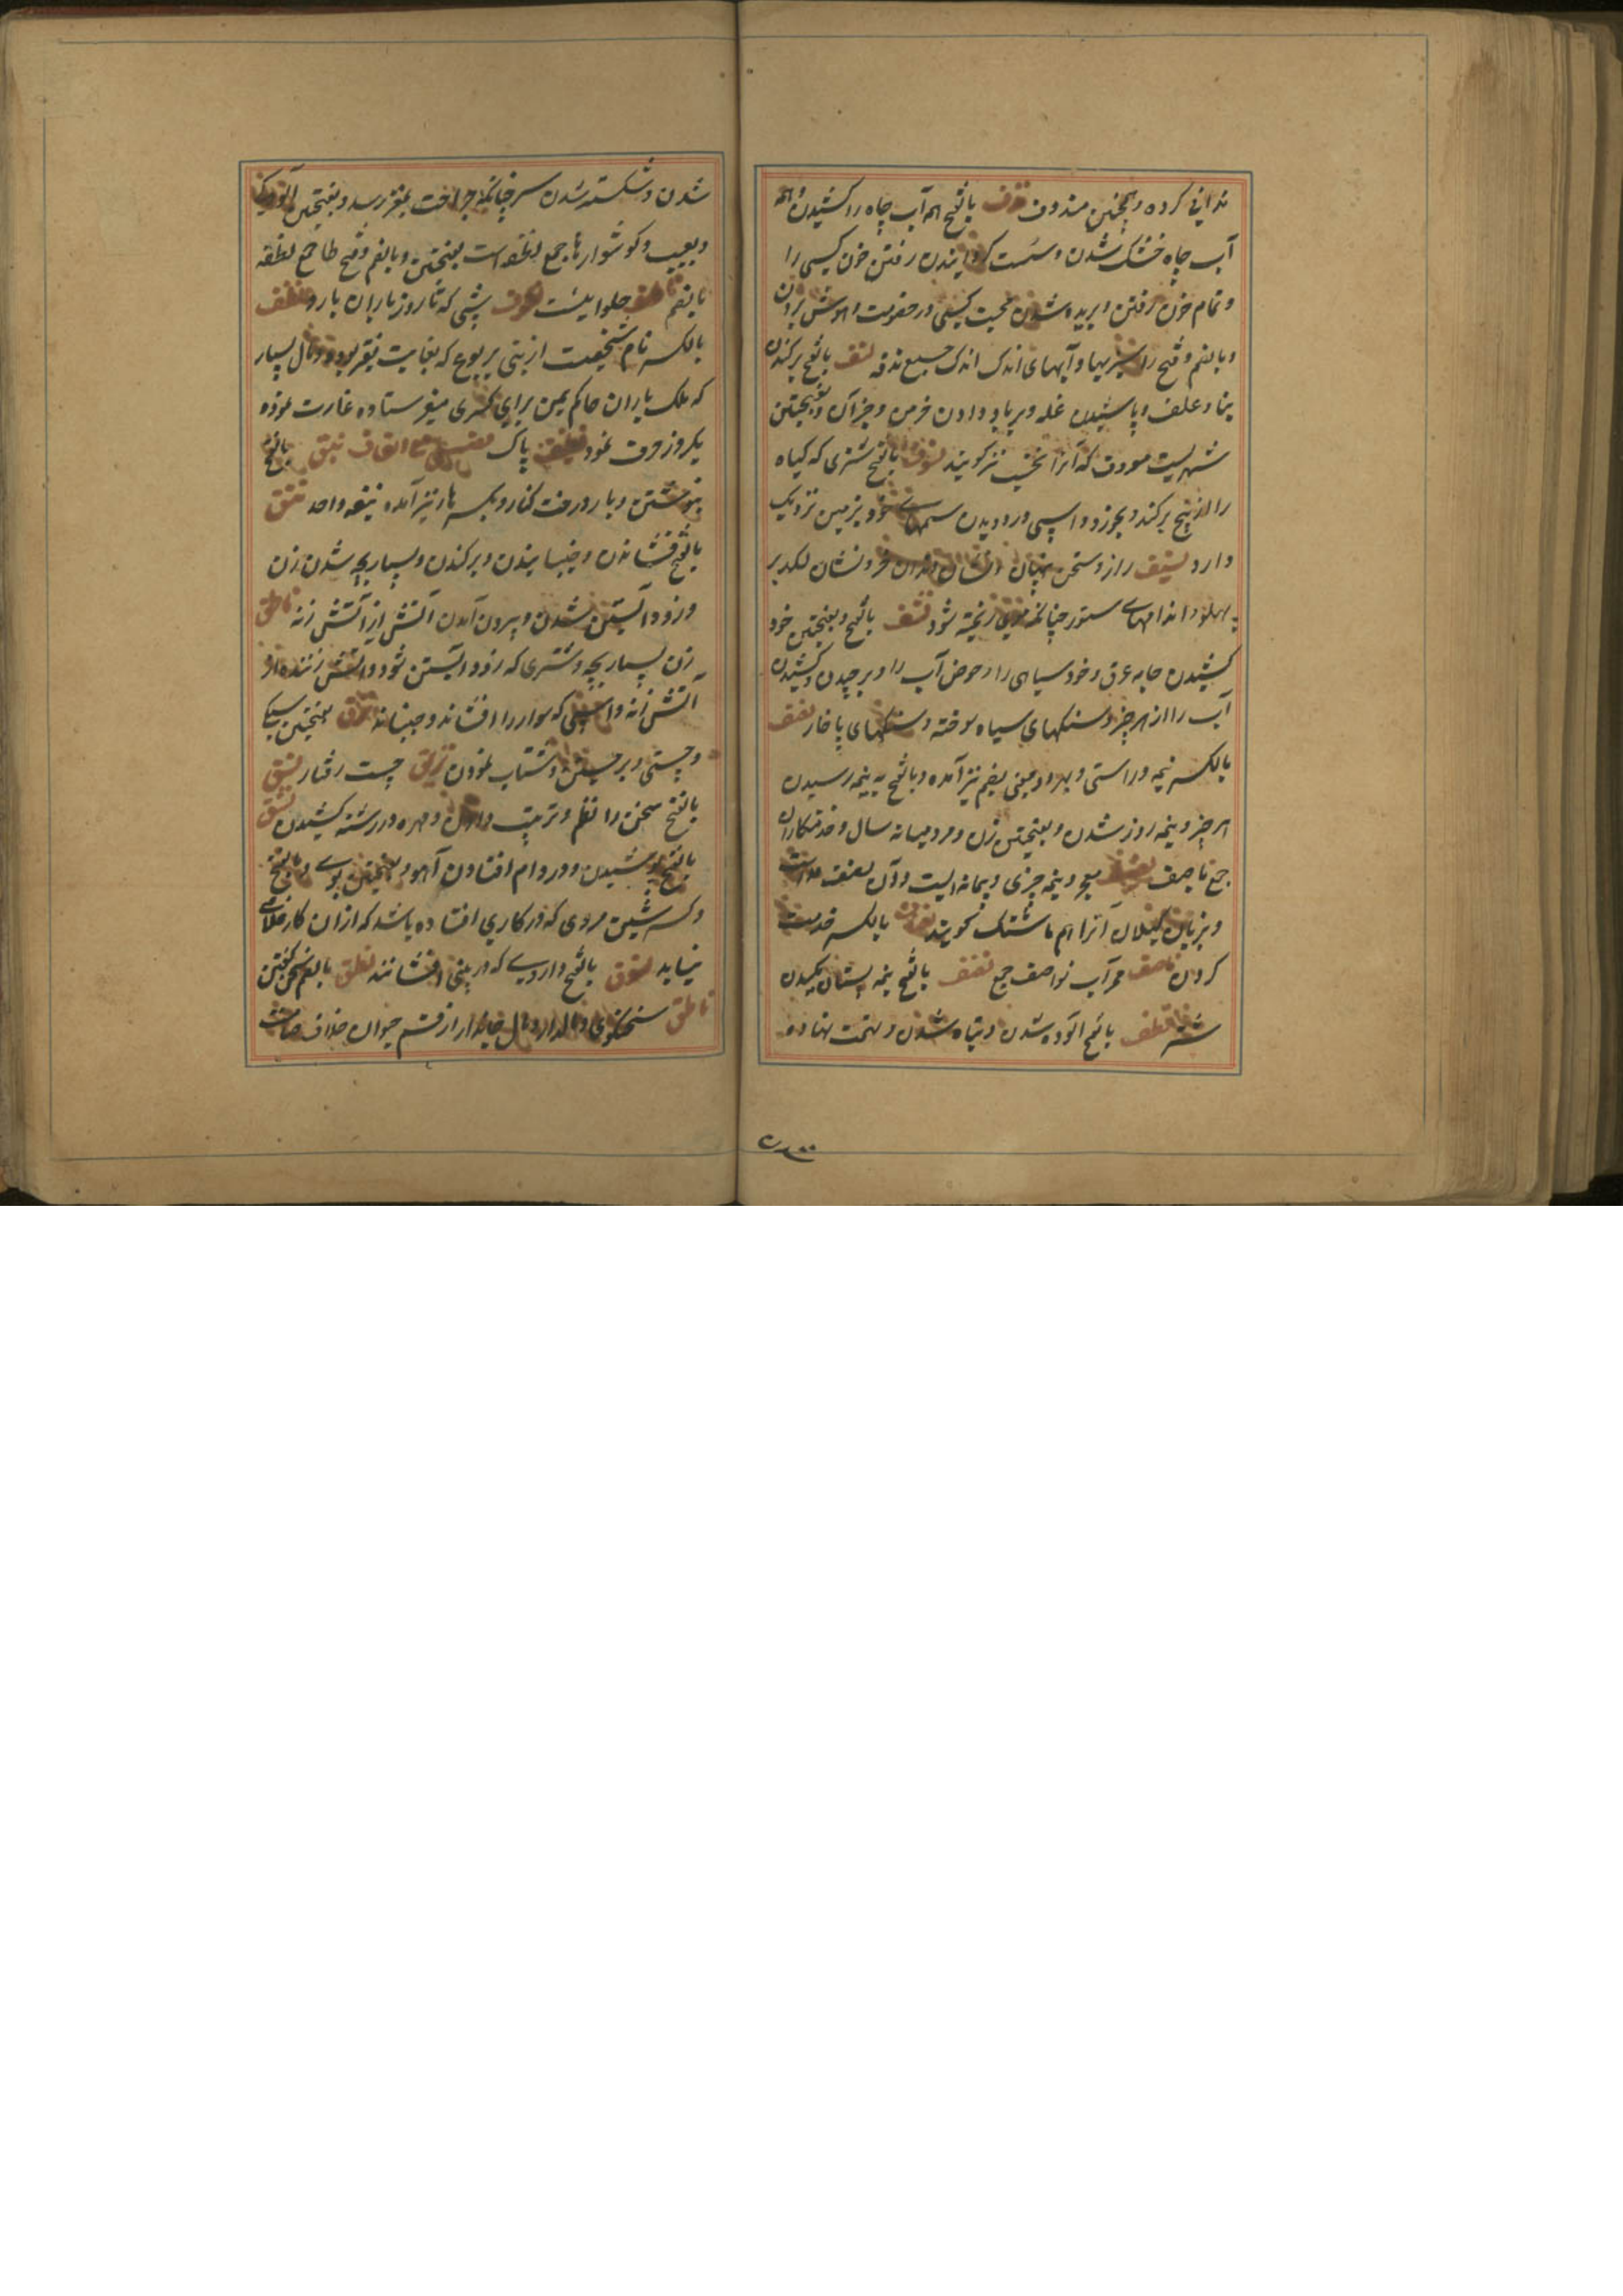 ندانی کرده و همچنین مندوف نزف بالفتح همه آب چاه را کشیدن و همه
آب چاه خشک شدن و سست گردانیدن رفتن خون کسی را
و تمام خون رفتن و بریده شدن حجت کسی در خصومت و هوش بردن
و بالضم و فتح را و آبهای اندک اندک جمیع نزفه نسف بالفتح برکندن
بنا و علف و پاشیدن غله و بر باد دادن خرمن و جز آن و بفتحتین
شهریست معروف که آنرا نخشب نیز گویند نسوف بالفتح شتری که گیاه
را از بیخ برکند و بخورد و اسپی در دویدن سمهای خود بزمین نزدیک
دارد نسیف راز و سخن پنهان و نشان لگد بر
پهلو و اندامهای ستور چنانکه موی ریخته شود نشف بالفتح و بفتحتین خود
کشیدن جامه عرق و خود سیاهی را و حوض آب را و برچیدن و کشیدن
آب را از هر چیز و سنگهای سیاه سوخته و سنگهای پا خار نصف
بالکسر نیمه و راستی و بهر دو معنی بضم نیز آمده و بالفتح به نیمه رسیدن
هر چیز و نیمه روز شدن و بفتحتین زن و مرد میانه سال و خدمتکاران
جمع ناصف نصیف معجر و نیمه چیزی و پیمانه ایست و آن نصف مد است
و بزبان گیلان آنرا هم ماشتک گویند بالکسر خدمت
کردن ناصف ممر آب نواصف جمع نضف بالفتح همه پستان مکیدن
شتر نطف بالفتح آلوده شدن و تباه شدن و تهمت نهاده
شدن و شکسته شدن سر چنانکه جراحت بمغز رسد و بفتحتین آلودگی
و بعیب و گوشوارها جمع نطفه است بفتحتین و بالضم و فتح طا جمع نطفه
بالضم ناطف حلوائیست نطوف شبی که تا روز باران بارد نطف
بالکسر نام شخصیت از بنی یربوع که بغایت فقیر بود و مال بسیار
که ملک یاران حاکم یمن برای کسری میفرستاده غارت نموده
یکروز صرف نمود نظیف پاک فصل مع القاف نبق بالفتح
نبوشتن و بار درخت کنار و بکسر با نیز آمده نبقه واحد نتق
بالفتح فشاندن و جنبانیدن و برکندن و بسیار بچه شدن زن
و زود آبستن شدن و بیرون آمدن آتش از آتش زنه ناتق
زن بسیار بچه و شتری که زود آبستن شود و آتش زننده از
آتش زنه و اسپی که سوار را افشاند و جنباند نزق بفتحتین سبکی
و چستی و برجستن و شتاب نمودن نزیق چست رفتار نسق
بالفتح سخن را نظم و ترتیب دادن و مهره در رشته کشیدن نشق
بالفتح بوئیدن و در دام افتادن آهو و بفتحتین بوی و بالفتح
و کسر شین مردی که در کاری افتاده باشد که ازان کار خلاصی
نیابد نشوق بالفتح داروئی که در بینی افشانند نطق بالضم سخن گفتن
ناطق سخنگوی و مالدار و مال جاندار از قسم حیوان خلاف صامت